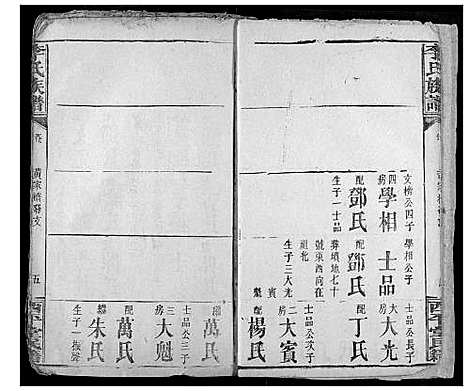 李氏族譜
文榜公四子
四房
學相
配
鄧氏
生子一士品
學相公子
士品
配
鄧氏
葬墳地七十
號東西向在
祖
生子三大光
賓
魁
士品公長子
大房
大光
配
丁氏
士品公次子
二房
大賓
配
楊氏
繼
萬氏
士品公三子
三房
大魁
配
萬氏
繼
朱氏
生子一
振聲
李氏族譜
五